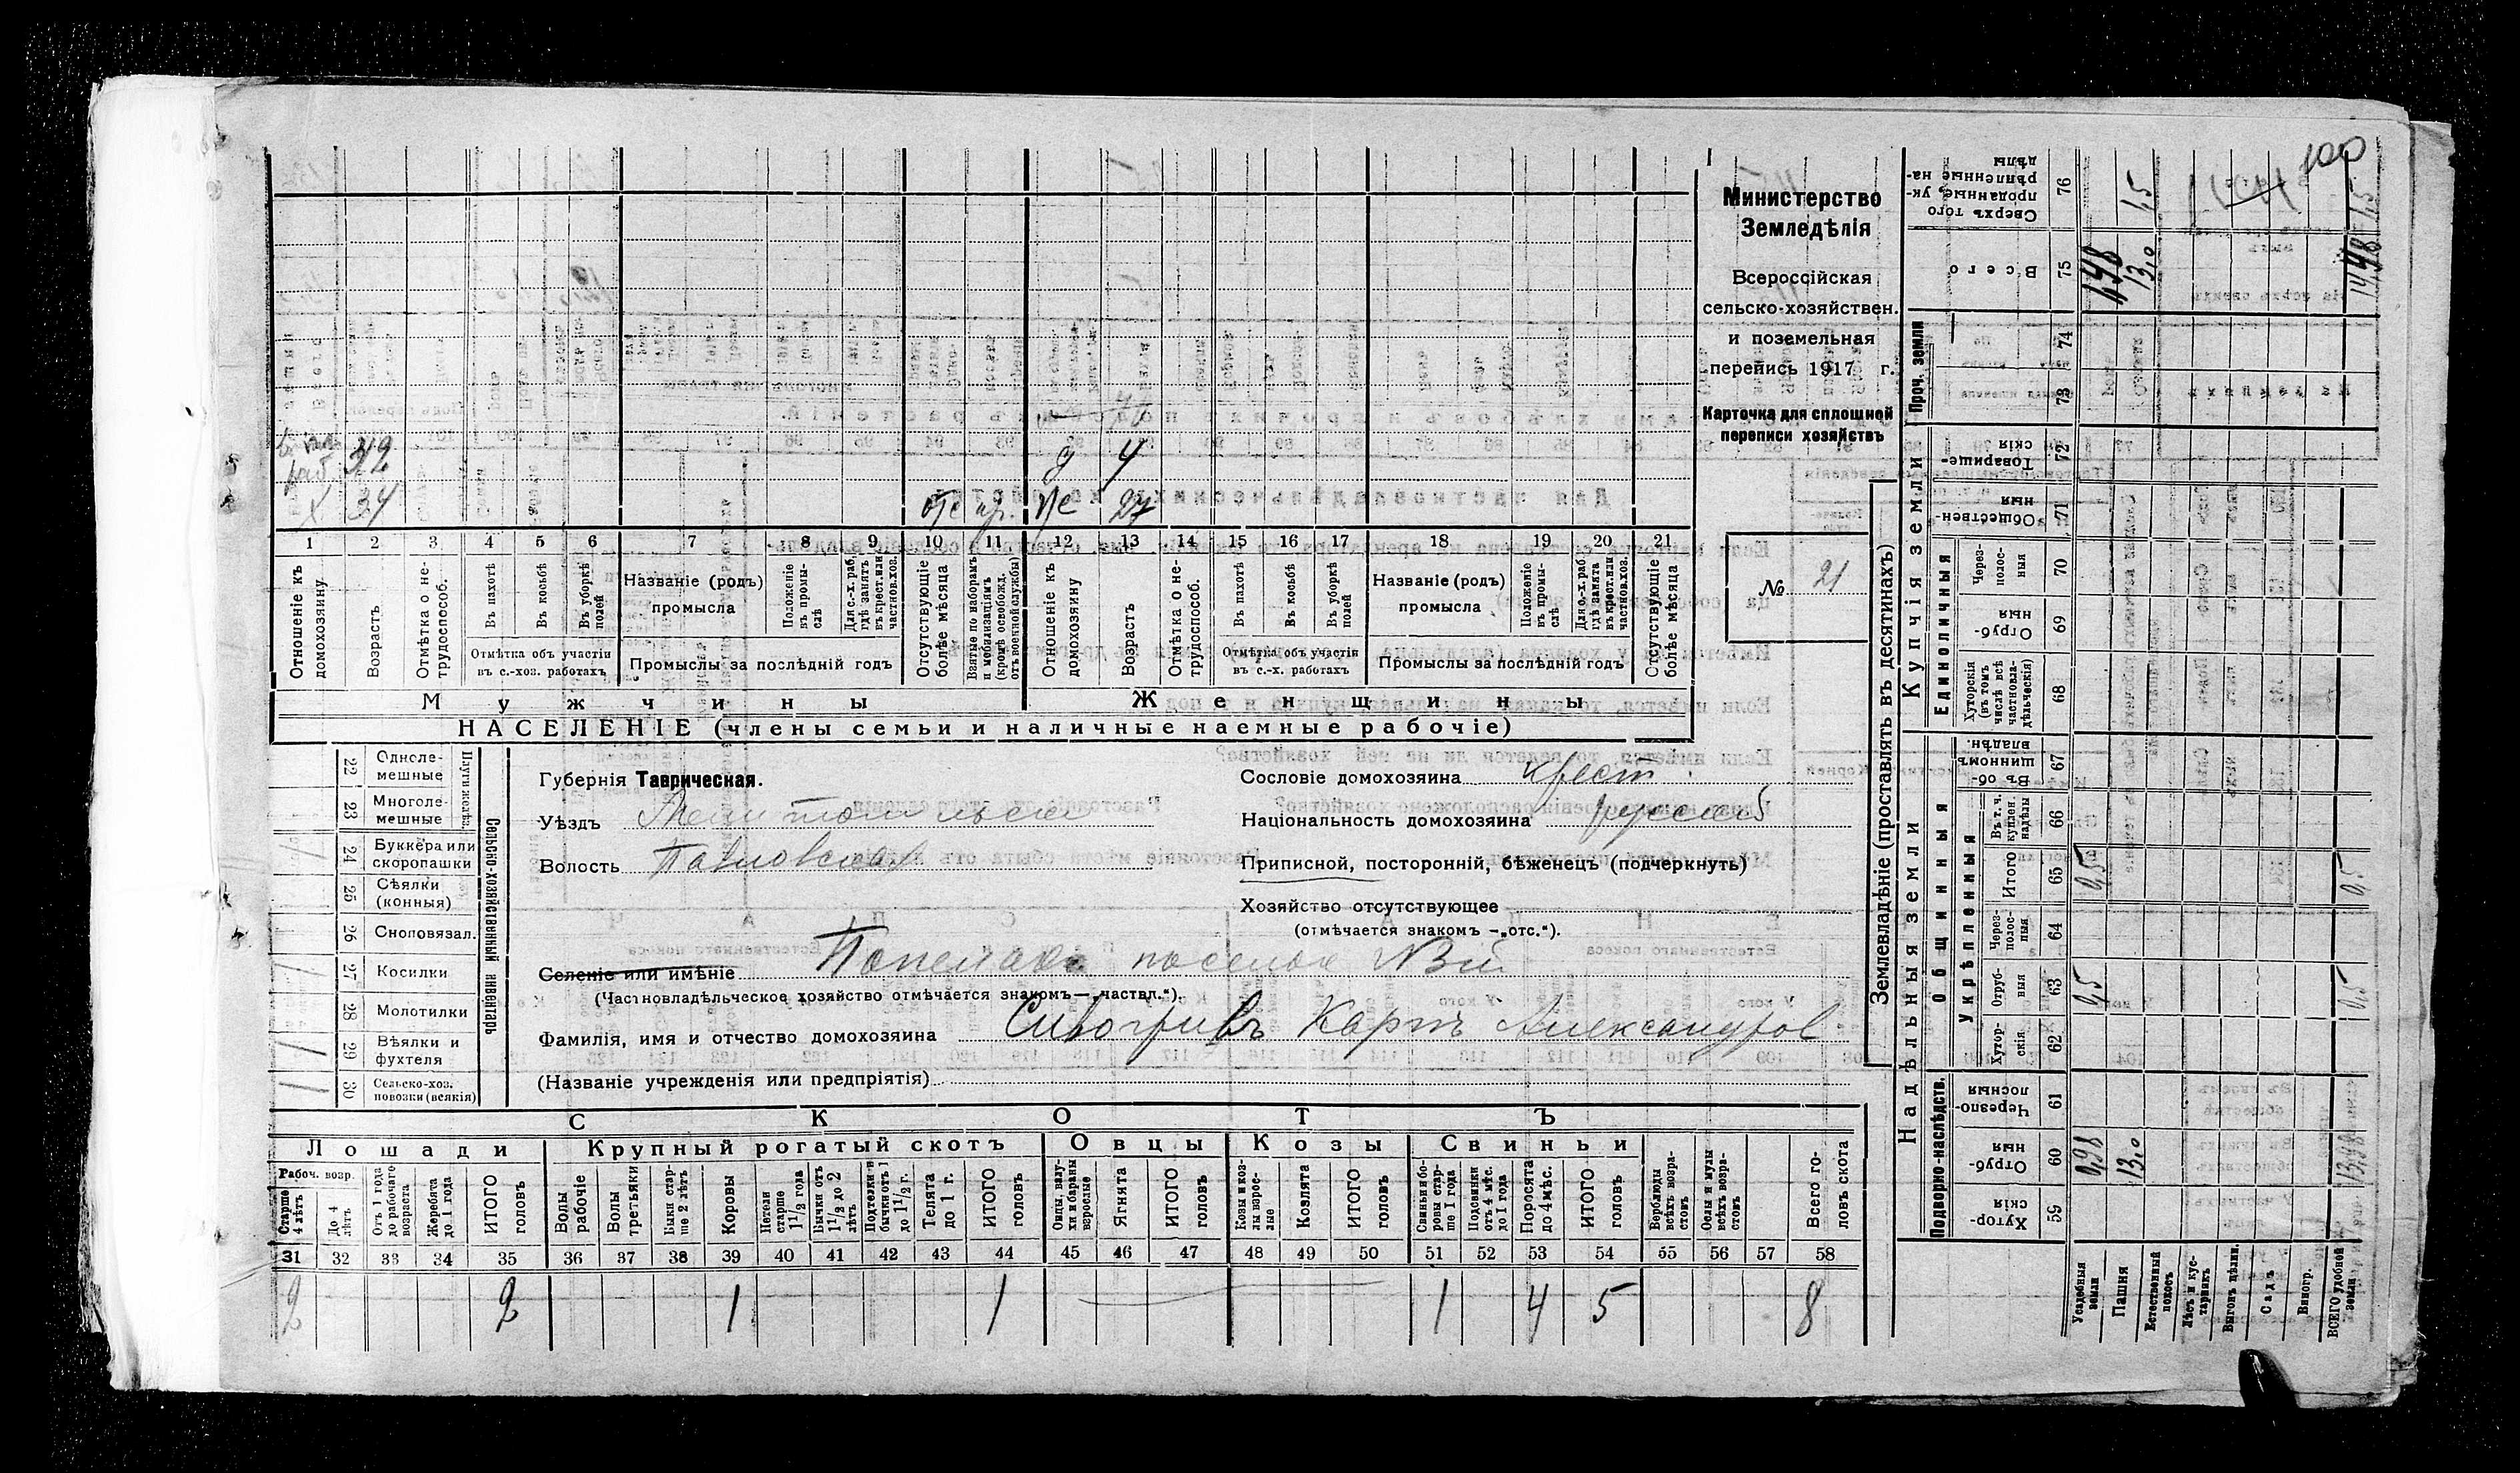 100
Министерство
Земледѣлія
Всероссійская
сельско-хозяйствен.
и поземельная
перепись 1917 г.
Карточка для сплошной
переписи хозяйствъ
№ 21
32 9 4
X 34 отс 27
1 2 3 4 5 6 7 8 9 10 11 12 13 14 15 16 17 18 19 20 21
Отношеніе къ домохозяину.
Возрастъ
Отмѣтка о не-трудоспособ.
Въ пахотѣ
Въ косьбѣ
Въ уборкѣ полей
Отмѣтка объ участіи
въ с.-хоз. работахъ
Названіе (родъ)
промысла
Положеніе въ промы-слѣ
Для с.-х. раб. гдѣ занятъ въ крест. или частнов. хоз.
Промыслы за послѣдній годъ
Отсутствующіе болѣе мѣсяца
Взятые по наборамъ и мобилизаціямъ (кромѣ освобожд. отъ военной службы)
Отношеніе къ домохозяину
Возрастъ
Отмѣтка о не-трудоспособ.
Въ пахотѣ
Въ косьбѣ
Въ уборкѣ полей
Отмѣтка объ участіи
въ с.-х. работахъ
Названіе (родъ)
промысла
Положеніе въ промы-слѣ
Для с.-х. раб. гдѣ занята въ крест. или частнов. хоз.
Промыслы за послѣдній годъ
Отсутствующіе болѣе мѣсяца
Мужчины Женщины
НАСЕЛЕНІЕ (члены семьи и наличные наемные рабочіе)
22 Одноле-мешные
23 Многоле-мешные
Плуги желѣз.
24 Буккера или скоропашки
25 Сѣялки (конныя)
26 Сноповязал.
27 Косилки
28 Молотилки
29 Вѣялки и фухтеля
30 Сельско-хоз. повозки (всякія)
Сельско-хозяйственный инвентарь
Губернія Таврическая.
Уѣздъ Мелитопольскій
Волость Павловская
Сословіе домохозяина крест.
Національность домохозяина русскій
Приписной, посторонній, бѣженецъ (подчеркнуть)
Хозяйство отсутствующее
(отмѣчается знакомъ —„отс.“).
Селеніе или имѣніе поселок №3й
(Частновладѣльческое хозяйство отмѣчается знакомъ—„частвл.“).
Фамилія, имя и отчество домохозяина Сивогривъ Карпъ Александров
(Названіе учрежденія или предпріятія)
СКОТЪ
Лошади Крупный рогатый скотъ Овцы Козы Свиньи
Рабоч. возр.
Старше 4 лѣтъ
До 4 лѣтъ
Отъ 1 года до рабочаго возраста
Жеребята до 1 года
ИТОГО головъ
Волы рабочіе
Волы третьяки
Быки стар-ше 2 лѣтъ
Коровы
Нетели старше 1 1/2 года
Бычки отъ 1 1/2 до 2 лѣтъ
Подтелки и бычки отъ 1 до 1 1/2 г.
Телята до 1 г.
ИТОГО головъ
Овцы, валу-хи и бараны взрослые
Ягнята
ИТОГО головъ
Козы и коз-лы взрос-лые
Козлята
ИТОГО головъ
Свиньи и бо-ровы стар-ше 1 года
Подсвинки отъ 4 мѣс. до 1 года
Поросята до 4 мѣс.
ИТОГО головъ
Верблюды всѣхъ возра-стовъ
Ослы и мулы всѣхъ возра-стовъ
Всего го-ловъ скота
31 32 33 34 35 36 37 38 39 40 41 42 43 44 45 46 47 48 49 50 51 52 53 54 55 56 57 58
2 2 1 1 1 4 5 8
Землевладѣніе (проставлять въ десятинахъ)
Надѣльныя земли Купчія земли Проч. земля
Подворно-наслѣдств.
Общинныя
Укрѣпленныя
Единоличныя
59 Хутор-скія
60 Отруб-ныя
61 Черезпо-лосныя
62 Хутор-скія
63 Отруб-ныя
64 Через-полос-ныя
65 Итого
66 Въ т. ч. куплен. надѣлы
67 Въ об-щинномъ владѣн.
68 Хуторскія (въ томъ числѣ всѣ частновла-дѣльческія)
69 Отруб-ныя
70 Через-полос-ныя
71 Обществен-ныя
72 Товарище-скія
73
74
75 Всего
76 Сверхъ того проданные, ук-рѣпленные на-дѣлы
Усадебныя земли 0,98 0,5 0,5
Пашня 13,0 13,0 1,5
Естественный покосъ
Лѣсъ и кус-тарникъ
Выгонъ цѣлин.
Садъ
Виногр.
ВСЕГО удобной земли 13,98 0,5 0,5 14,48 1,5